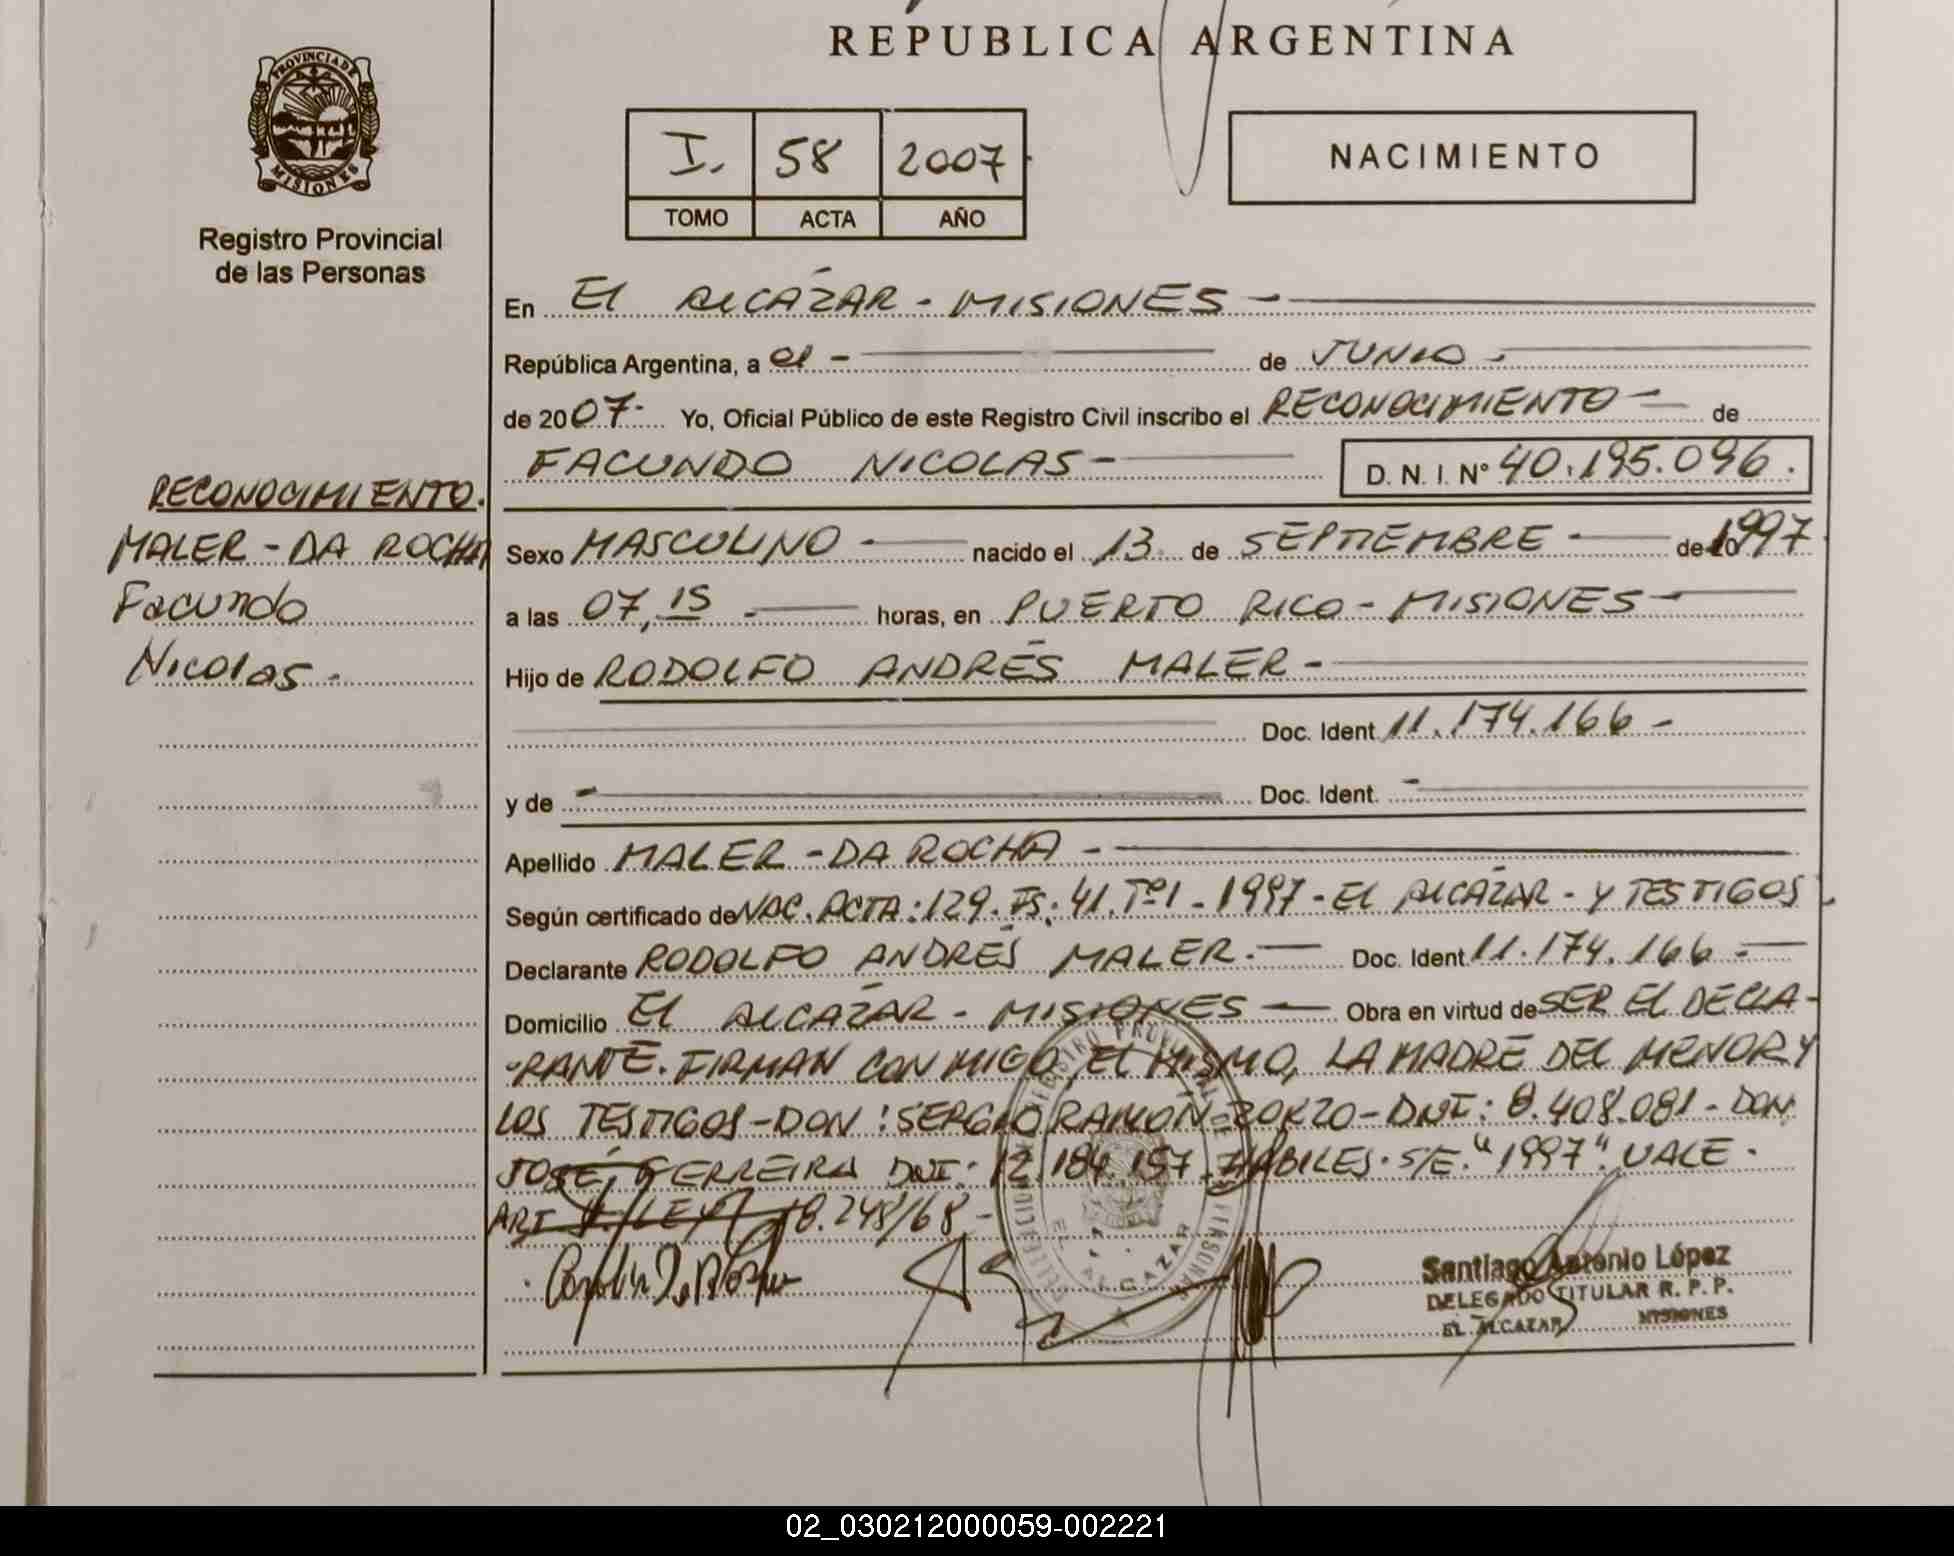 REPUBLICA ARGENTINA
PROVINCIA DE
MISIONES
Registro Provincial
de las Personas
I. 58 2007
TOMO ACTA AÑO
NACIMIENTO
En El ALCÁZAR - MISIONES -
República Argentina, a 01 - de JUNIO -
de 2007 - Yo, Oficial Público de este Registro Civil inscribo el RECONOCIMIENTO - de
FACUNDO NICOLAS - D. N. I. Nº 40.195.096.
RECONOCIMIENTO.
MALER - DA ROCHA
Facundo
Nicolas -
Sexo MASCULINO - nacido el 13 de SEPTIEMBRE - de 1997
a las 07,15 - horas, en PUERTO RICO - MISIONES -
Hijo de RODOLFO ANDRÉS MALER -
Doc. Ident. 11.174.166 -
y de - Doc. Ident. -
Apellido MALER - DA ROCHA -
Según certificado de NAC. ACTA: 129. FS: 41. Tº 1 - 1997 - El ALCÁZAR - Y TESTIGOS
Declarante RODOLFO ANDRÉS MALER. - Doc. Ident. 11.174.166 -
Domicilio El ALCÁZAR - MISIONES - Obra en virtud de SER EL DECLA-
-RANTE. FIRMAN CONMIGO, EL MISMO, LA MADRE DEL MENOR Y
LOS TESTIGOS - DON: SERGIO RAMÓN ZORZO - DNI: 8.408.081 - DON
JOSÉ FERREIRA DNI: 12.184.157 - HÁBILES. S/E. "1997". VALE.
ART LEY 18.248/68 -
EL ALCAZAR
Santiago Antonio López
DELEGADO TITULAR R. P. P.
EL ALCAZAR MISIONES
02_030212000059-002221